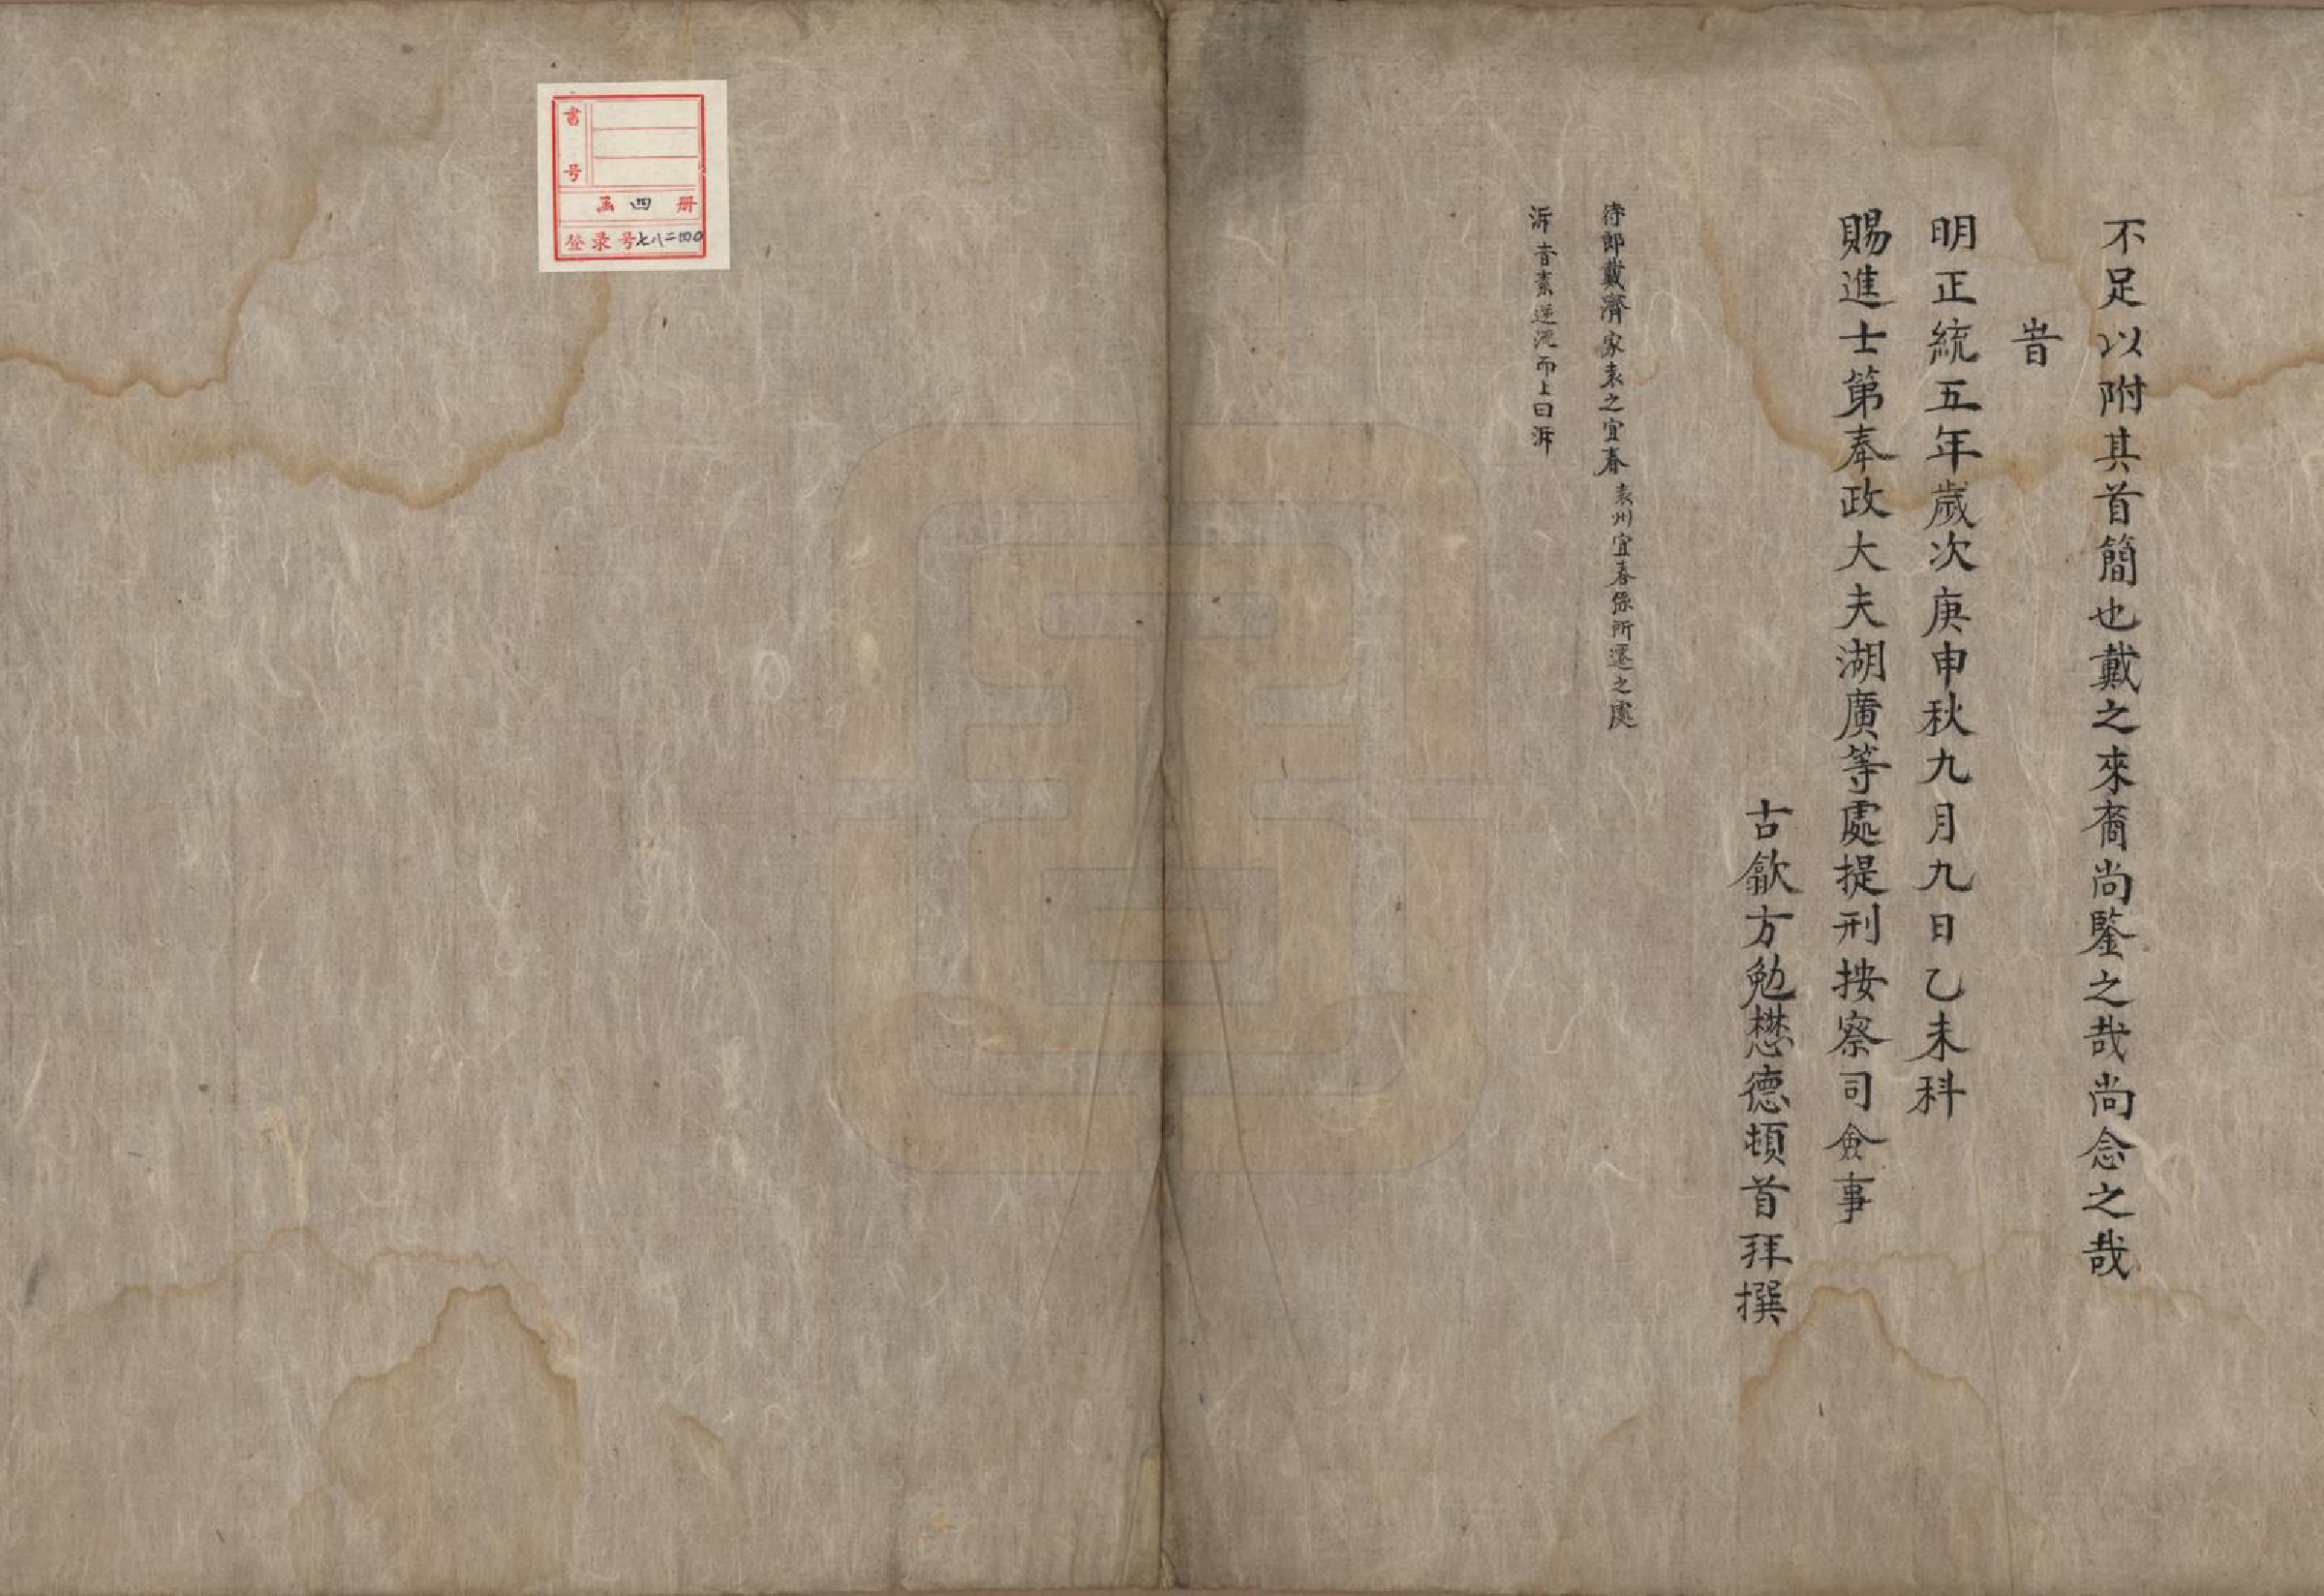 不足以附其首簡也戴之來裔尚鑒之哉尚念之哉
旹
明正統五年歲次庚申秋九月九日乙未科
賜進士第奉政大夫湖廣等處提刑按察司僉事
古歙方勉懋德頓首拜撰
侍郎戴濟家袁之宜春 袁州宜春係所遷之處
泝音素逆流而上曰泝
书号
函四册
登录号七八二四〇